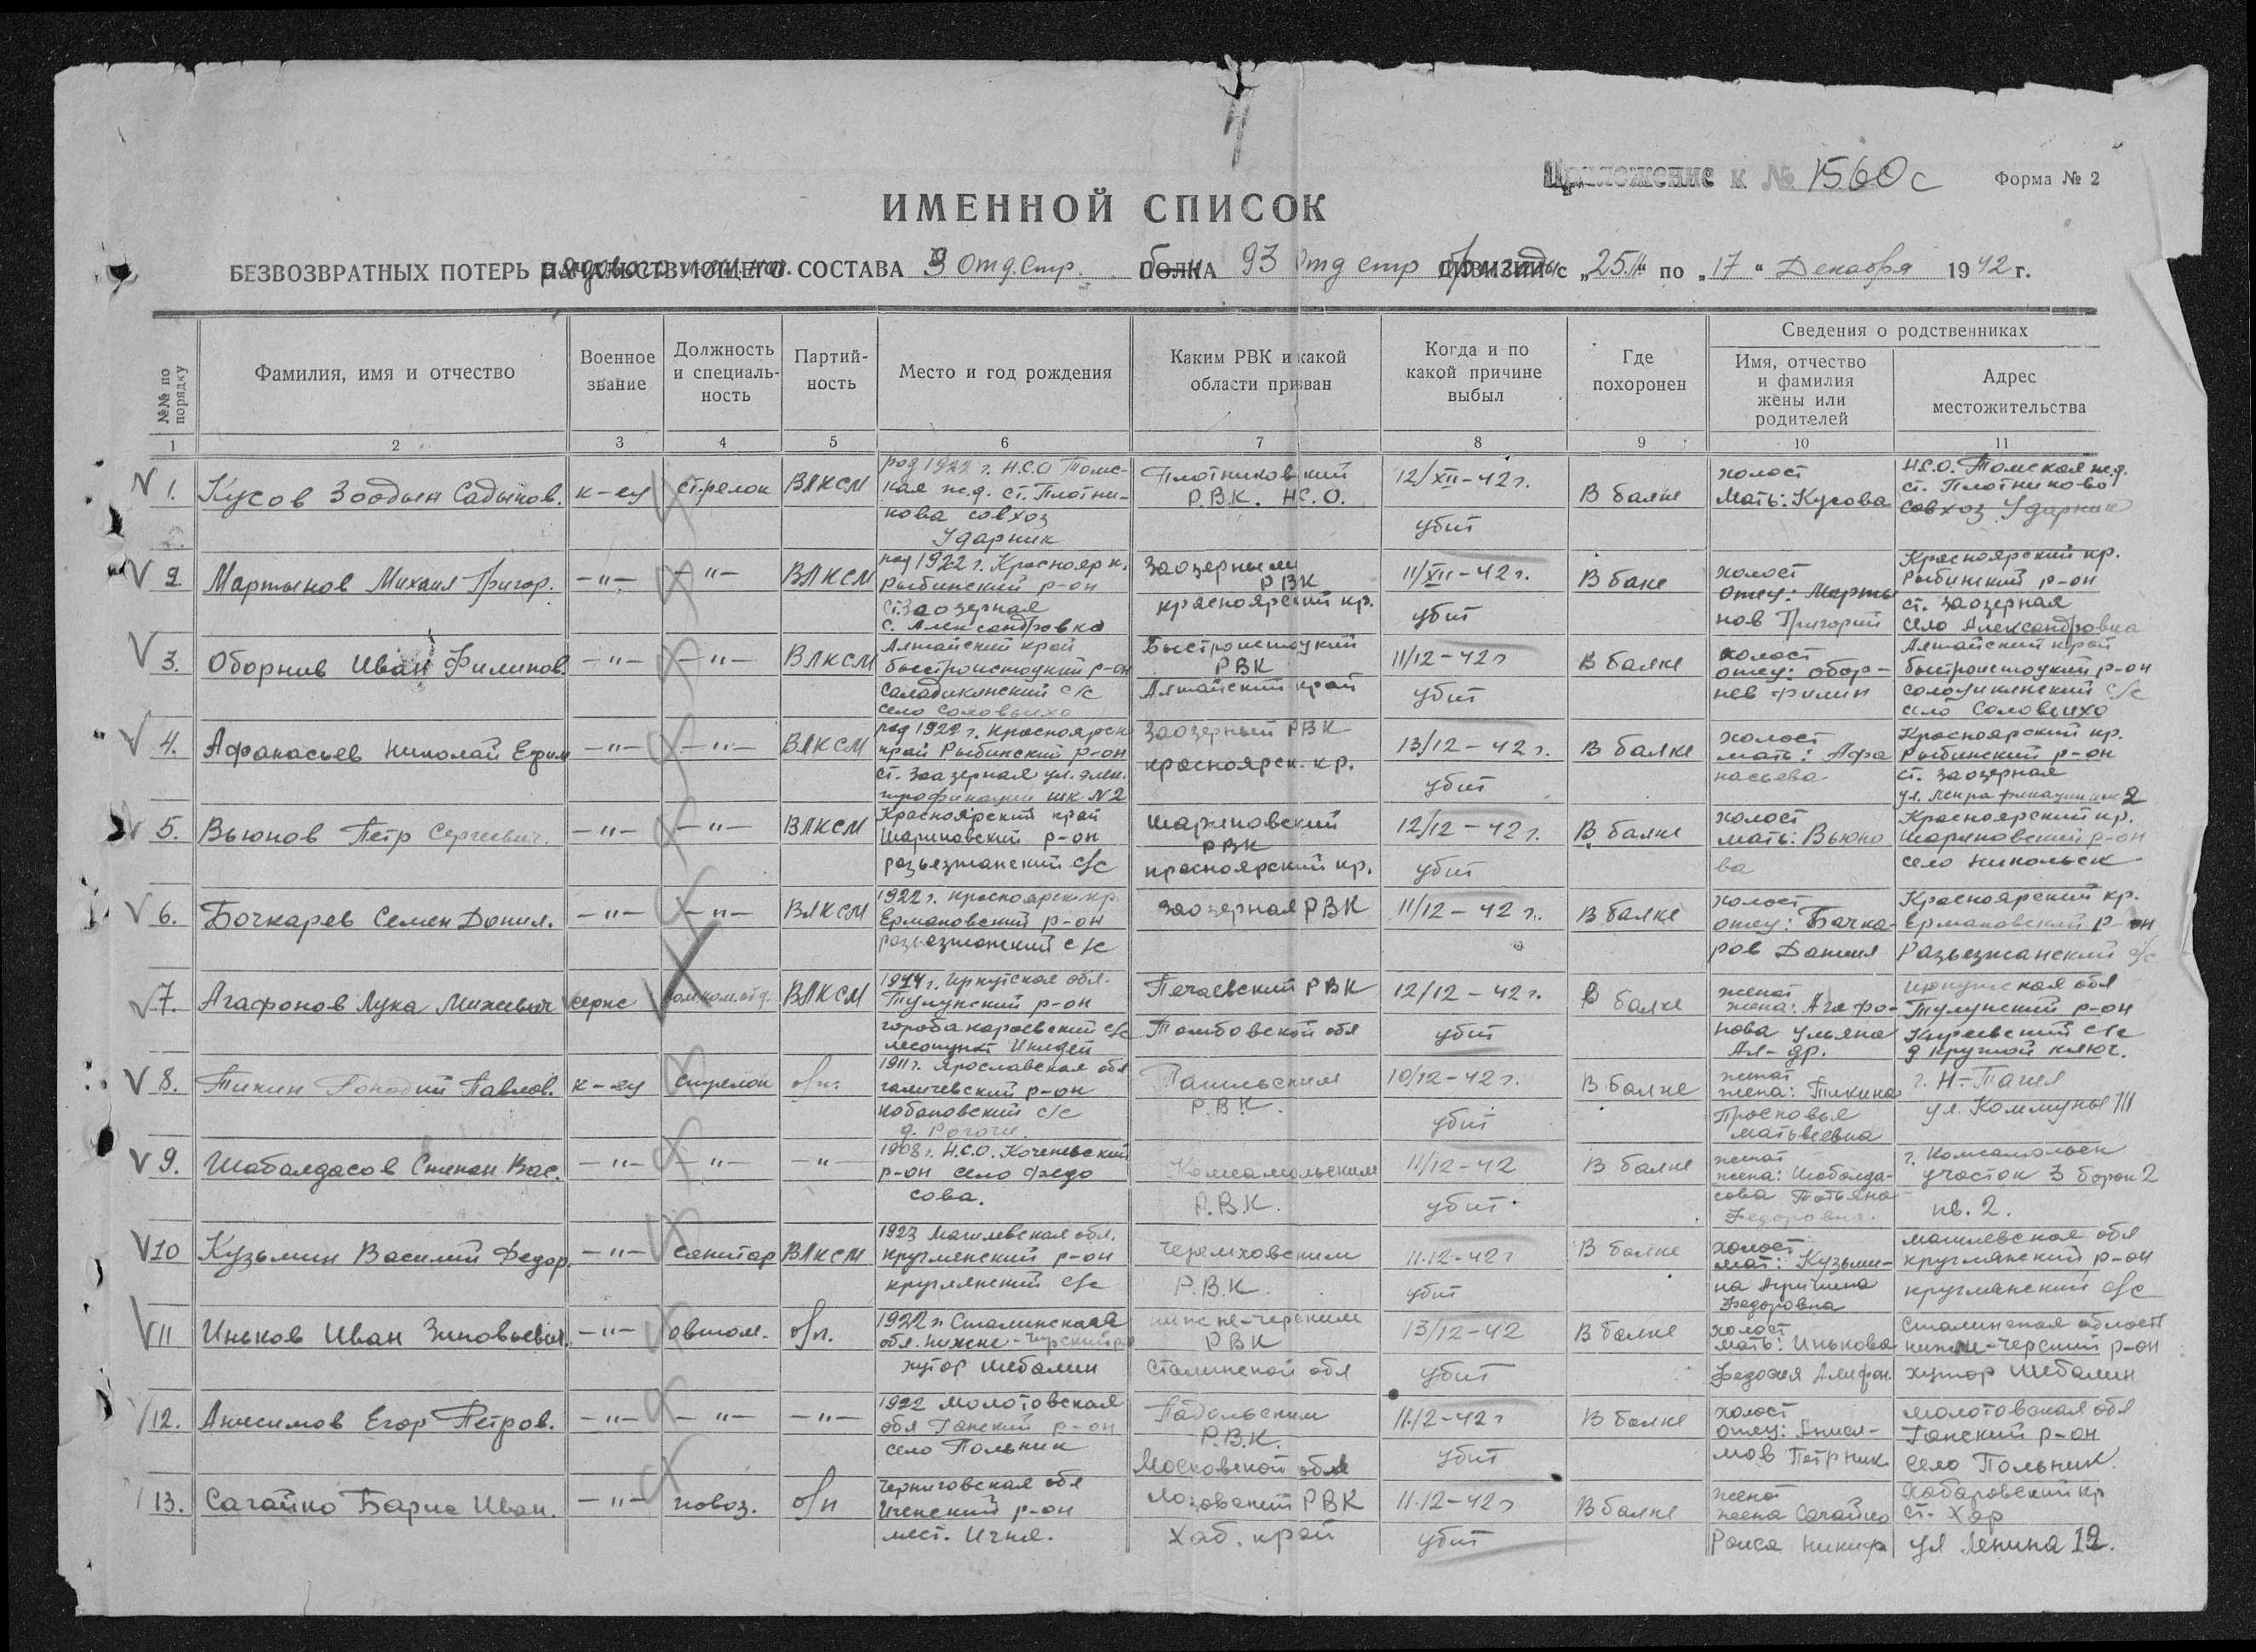 Приложение к № 1560с
Форма № 2
ИМЕННОЙ СПИСОК
БЕЗВОЗВРАТНЫХ ПОТЕРЬ рядового СОСТАВА 3 Отд. Стр. б-на 93 Отд стр бригады с „25.11“ по „17“ Декабря 1942 г.
№№ по порядку
Фамилия, имя и отчество
Военное звание
Должность и специаль-ность
Партий-ность
Место и год рождения
Каким РВК и какой области призван
Когда и по какой причине выбыл
Где похоронен
Сведения о родственниках
Имя, отчество и фамилия жены или родителей
Адрес местожительства
1 2 3 4 5 6 7 8 9 10 11
1. Кусов Зоодын Садыков. к-ец стрелок ВЛКСМ
род 1922 г. Н.С.О Томс-
кая ж.д. ст. Плотни-
кова совхоз
Ударник
Плотниковский
Р.В.К. Н.С.О.
12/XII-42 г.
убит
В балке
холост
Мать: Кусова
Н.С.О. Томская ж.д.
ст. Плотниково
совхоз Ударник
2 Мартынов Михаил Григор. -"- -"- ВЛКСМ
род 1922 г. Краснояр к.
Рыбинский р-он
ст. Заозерная
с. Александровка
Заозерным
РВК
красноярский кр.
11/XII-42 г.
убит
В баке
холост
отец: Марты
нов Григорий
Красноярский кр.
Рыбинский р-он
ст. Заозерная
село Александровка
3. Оборнив Иван Филипов. -"- -"- ВЛКСМ
Алтайский край
быстроистоцкий р-он
село Соловьиха
Быстроистоцкий
РВК
Алтайский край
11/12-42 г
убит
В балке
холост
отец: Обор-
нев Филип
Алтайский край
быстроистоцкий р-он
село Соловьиха
4. Афанасьев Николай Ефим -"- -"- ВЛКСМ
род 1922 г. Красноярск
край Рыбинский р-он
ст. Заозерная ул. элек.
трофикации шк N 2
Заозерный РВК
красноярск. кр.
13/12-42 г.
убит
В балке
холост
мать: Афа
насьева
Красноярский кр.
Рыбинский р-он
ст. Заозерная
5. Вьюнов Петр Сергеевич. -"- -"- ВЛКСМ
Красноярский край
Шариповский р-он
разъезжанский с/с
Шариповский
РВК
красноярский кр.
12/12-42 г.
убит
В балке
холост
мать: Вьюно
ва
Красноярский кр.
Шариповский р-он
село Никольск
6. Бочкарев Семен Данил. -"- -"- ВЛКСМ
1922 г. красноярск. кр.
Ермаковский р-он
разъезжанский с/с
Заозерная РВК
11/12-42 г.
В балке
холост
отец: Бачка-
ров Данил
Красноярский кр.
Ермаковский р-он
Разъезжанский с/с
7. Агафонов Лука Михеевич сержс помком.отд. ВЛКСМ
Иркутская обл.
Тулунский р-он
Печаевский РВК
Тамбовской обл
12/12-42 г.
убит
В балке
женат
жена: Агафо-
нова Ульяна
Ал-др.
Иркутская обл
Тулунский р-он
с/с
д круглой ключ.
8. Тикин Павлов. к-ец стрелок б/п.
1911 г. Ярославская обл
галичевский р-он
с/с
Р.В.К.
10/12-42 г.
убит
В балке
женат
жена: Тикина
Просковья
Матвеевна
г. Н-Тагил
ул. Коммуны
9. Шабалдасов Степан Вас. -"- -"- -"-
1908 г. Н.С.О. Коченевский
р-он село Федо
сова.
Комсамольским
Р.В.К.
11/12-42
убит
В балке
женат
жена: Шабалда-
сова Татьяна
Федоровна.
г. Комсамольск
участок 3 барак 2
кв. 2.
10 Кузьмин Василий Федор. -"- санитар ВЛКСМ
1923 Магилевская обл.
круглянский р-он
круглянский с/с
Черемховским
Р.В.К.
11.12-42 г
убит
В балке
холост
мат: Кузьми-
на
Федоровна
магилевская обл
круглянский р-он
круглянский с/с
11 Иньков Иван Зиновьевич. -"- автом. б/п.
1922 г. Сталинская
обл. Нижне-Чирский р-н
хутор Шебалин
нижне-черским
РВК
Сталинской обл
13/12-42
убит
В балке
холост
мать: Инькова
Сталинская область
нижне-черский р-он
хутор Шебалин
12. Анисимов Егор Петров. -"- -"- -"-
1922 Молотовская
обл р-он
село Польник
Падольским
Р.В.К.
Московской обл
11.12-42 г
убит
В балке
холост
отец: Аниси-
мов Петр Ник.
молотовская обл
р-он
село Польник.
13. Сагайко Барис Иван. -"- повоз. б/п
Черниговская обл
Иченский р-он
мест. Ичня.
Лазовский РВК
Хаб. край
11.12-42 г
убит
В балке
женат
жена Сагайко
Раиса Никиф
Хабаровский кр
ст. Хор
ул Ленина 12.